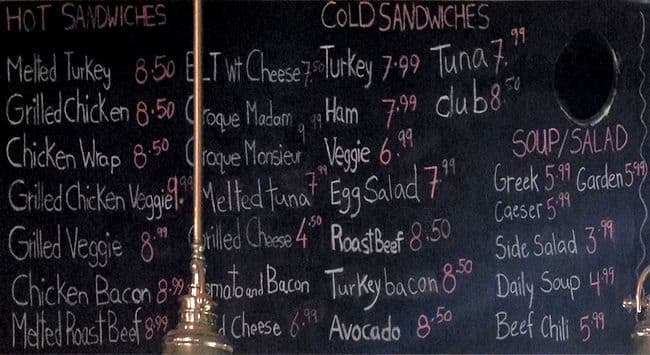 HOT SANDWICHES
Melted Turkey 8.50
Grilled Chicken 8.50
Chicken Wrap 8.50
Grilled Chicken Veggie 9.99
Grilled Veggie 8.99
Chicken Bacon 8.99
Melted Roast Beef 8.99
LT wt Cheese 7.50
roque Madam 9.99
roque Monsieur
Melted tuna 7.99
rilled Cheese 4.50
mato and Bacon
d Cheese 6.99
COLD SANDWICHES
Turkey 7.99
Ham 7.99
Veggie 6.99
Egg Salad 7.99
Roast Beef 8.50
Turkey bacon 8.50
Avocado 8.50
Tuna 7.99
club 8.50
SOUP/SALAD
Greek 5.99 Garden 5.99
Caeser 5.99
Side Salad 3.99
Daily Soup 4.99
Beef Chili 5.99